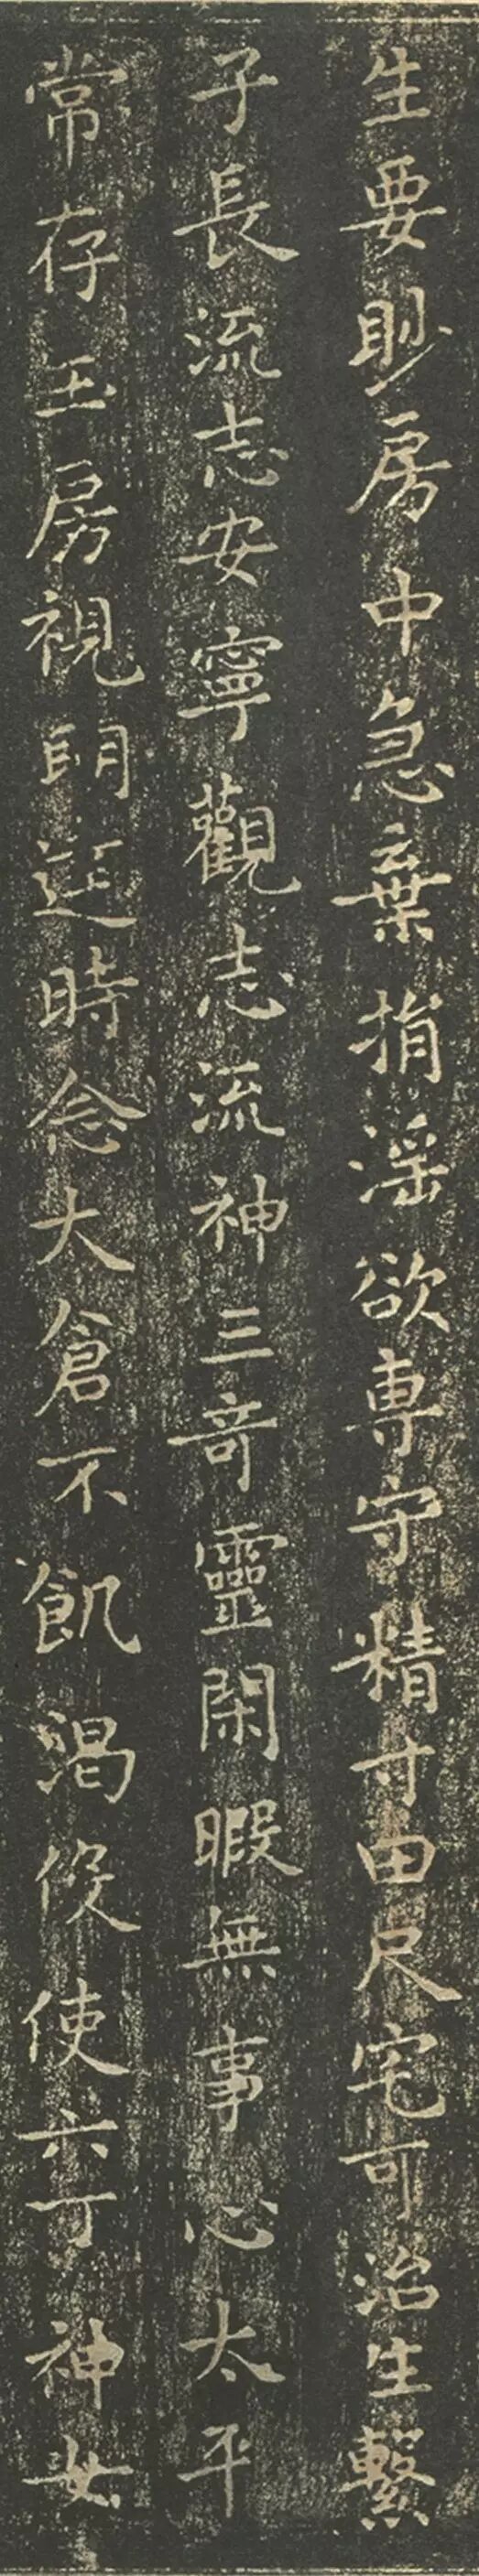 生要眇房中急棄捐淫欲専守精寸田尺宅可治生繋
子長流志安寧觀志流神三奇靈閑暇無事心太平
常存玉房視明達時念大倉不飢渴役使六丁神女